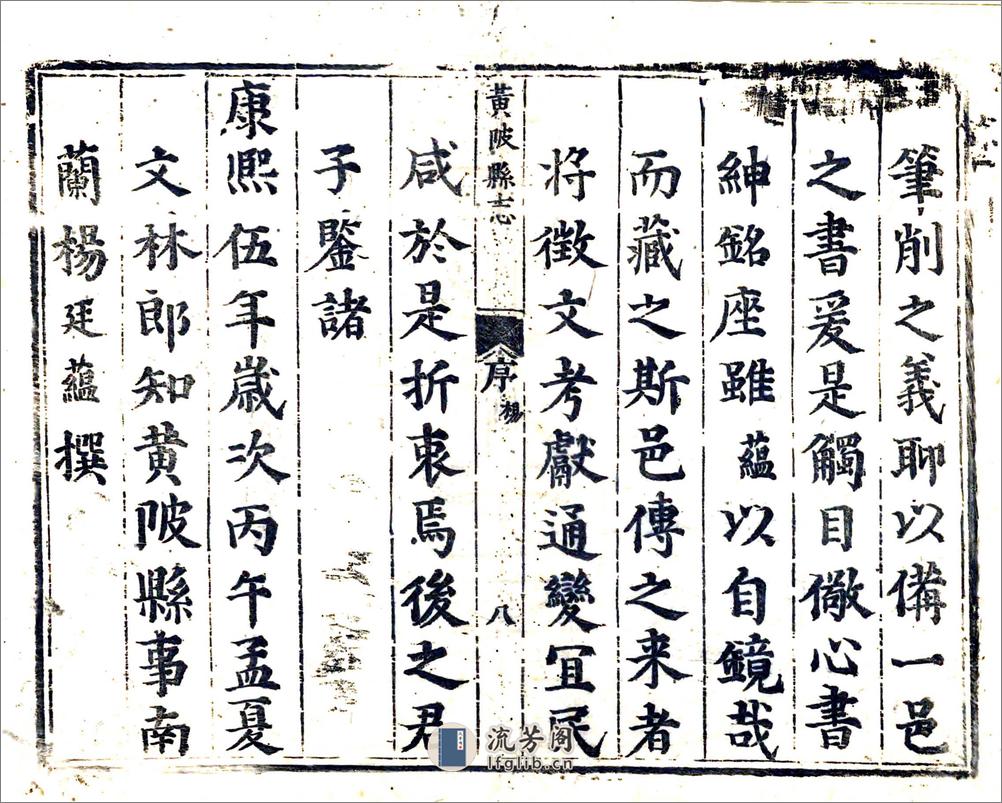 筆削之義聊以備一邑
之書爰是觸目儆心書
紳銘座雖蘊以自鏡哉
而藏之斯邑傳之来者
將徵文考獻通變宜民
黃陂縣志
序
楊
八
咸於是折衷焉後之君
子鑒諸
康熙伍年歲次丙午孟夏
文林郎知黃陂縣事南
蘭楊廷蘊撰
流芳阁
lfglib.cn